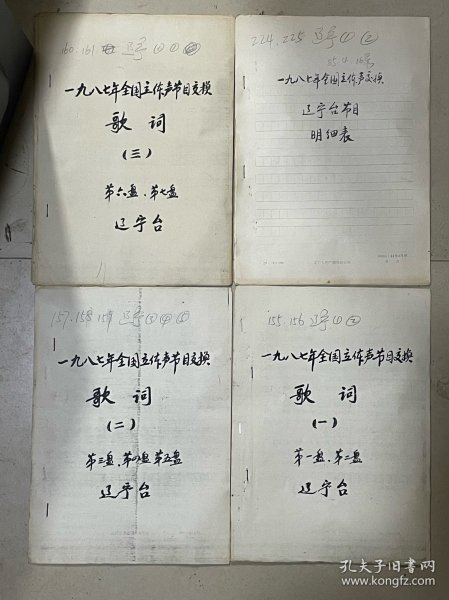 160.161 辽宁
一九八七年全国立体声节目交换
歌 词
(三)
第六盘、第七盘
辽宁台
224.225 辽宁 ① ②
一九八七年全国立体声交换
辽宁台节目
明细表
157.158 159 辽宁 ③ ④ ⑤
一九八七年全国立体声节目交换
歌 词
(二)
第三盘、第四盘 第五盘
辽宁台
155.156 辽宁 ① ②
一九八七年全国立体声节目交换
歌 词
(一)
第一盘、第二盘
辽宁台
孔夫子旧书网
www.kongfz.com